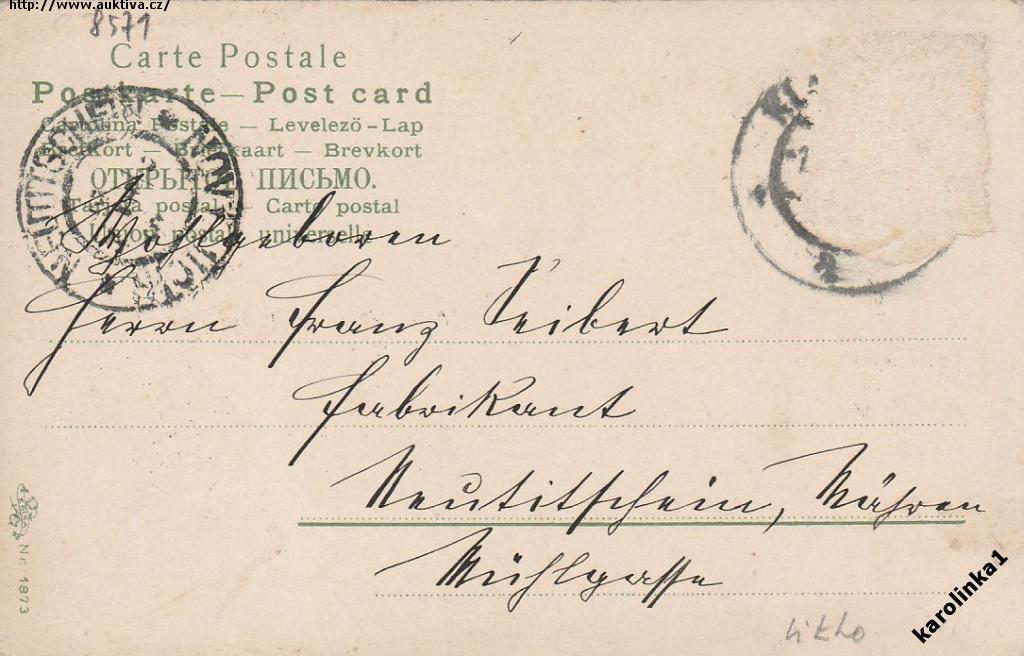 http://www.auktiva.cz/
8571
Carte Postale
Postkarte — Post card
Cartolina Postale — Levelező-Lap
Brefkort — Briefkaart — Brevkort
ОТКРЫТОЕ ПИСЬМО.
Tarjeta postal — Carte postal
Union postale universelle
NEUTITSCHEIN * NOVÝ JIČÍN
a
Wohlgeboren
Herrn Franz Seibert
Fabrikant
Neutitschein, Mähren
Mühlgasse
Nr. 1873
litho
karolinka1